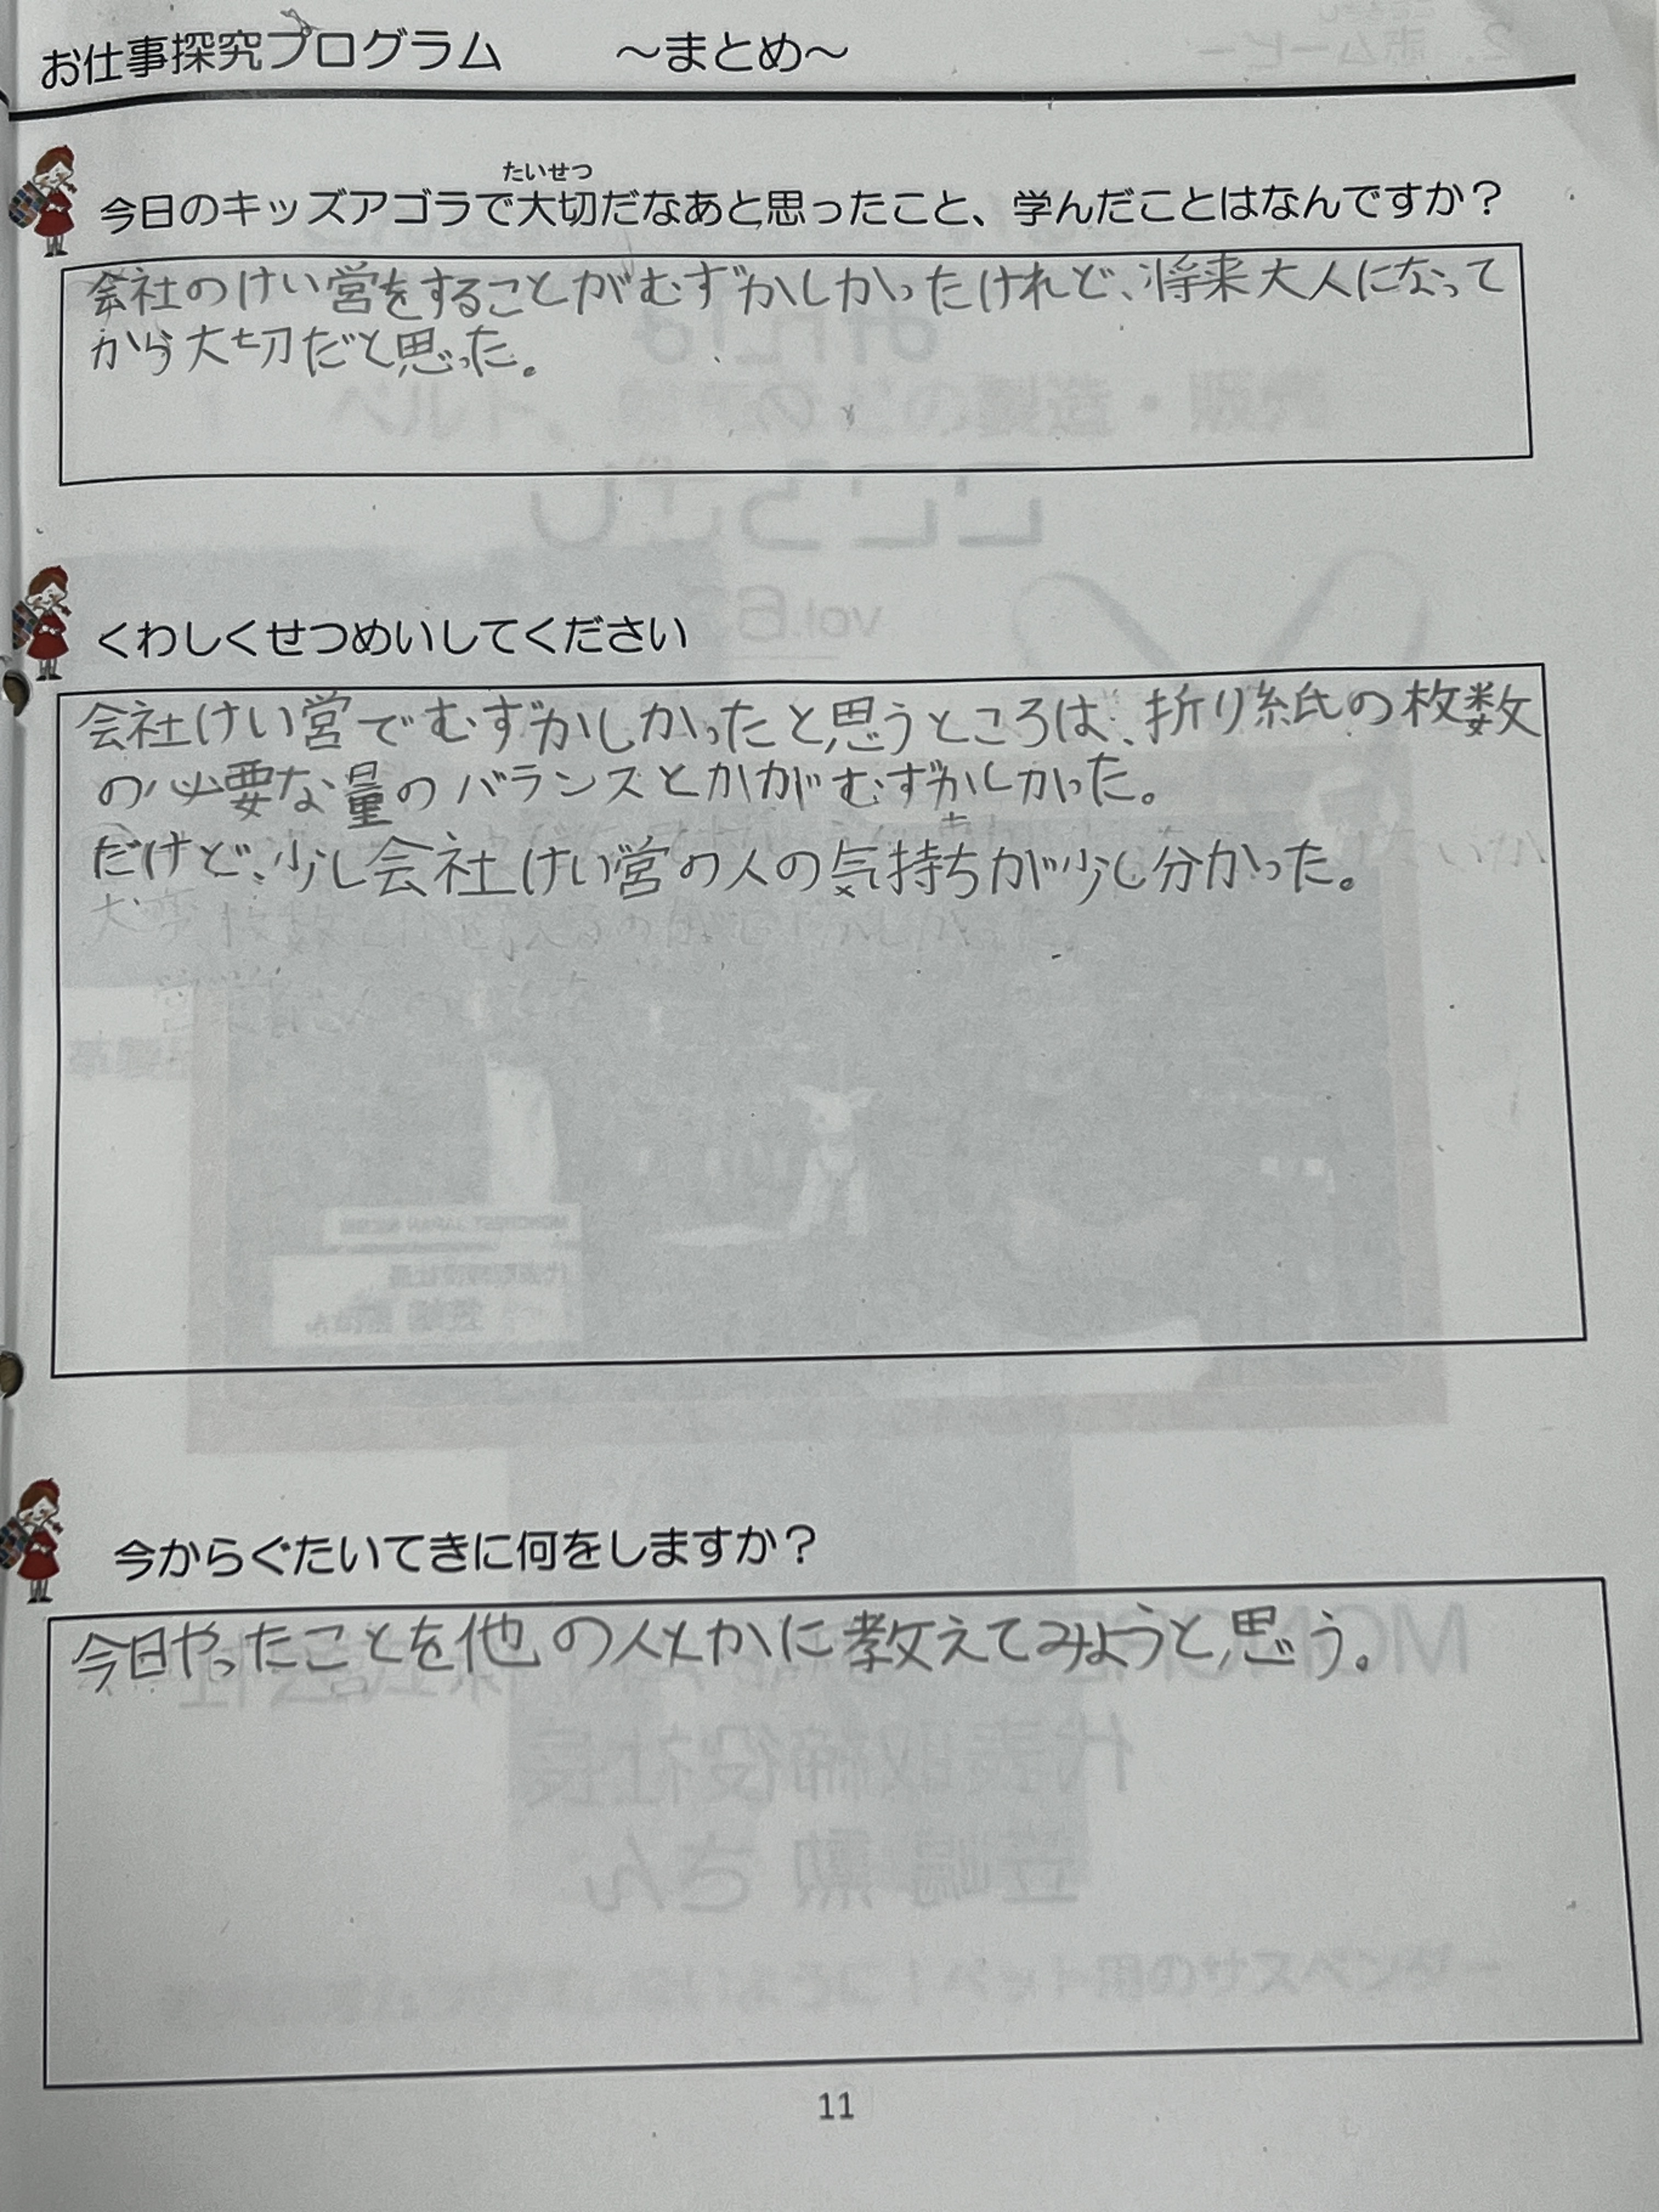 お仕事探究プログラム　　～まとめ～
たいせつ
今日のキッズアゴラで大切だなあと思ったこと、学んだことはなんですか？
会社のけい営をすることがむずかしかったけれど、将来大人になって
から大切だと思った。
くわしくせつめいしてください
会社けい営でむずかしかったと思うところは、折り紙の枚数
の必要な量のバランスとかがむずかしかった。
だけど、少し会社けい営の人の気持ちが少し分かった。
今からぐたいてきに何をしますか？
今日やったことを他の人とかに教えてみようと思う。
11